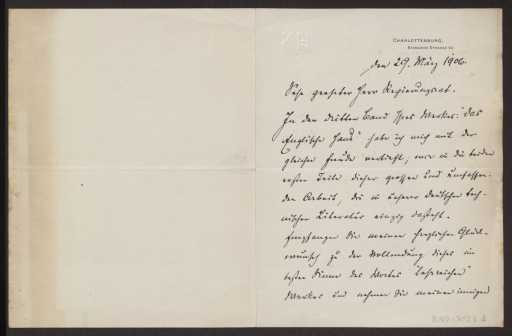 CHARLOTTENBURG,
den 29. März 1906.
Sehr geehrter Herr Regierungsrat.
In den dritten Band Ihres Werkes: "Das
Englische Haus" habe ich mich mit der
gleichen Freude vertieft, wie in die beiden
ersten Teile dieser grossen und umfassen-
den Arbeit, die in unserer deutschen tech-
nischen Literatur einzig dasteht.
Empfangen Sie meinen herzlichen Glück-
wunsch zu der Vollendung dieses im
besten Sinne des Wortes "lehrreichen"
Werkes und nehmen Sie meinen innigen